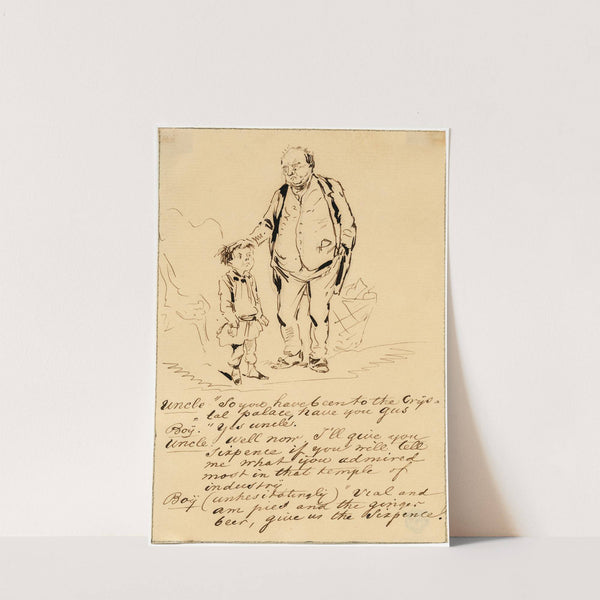 Uncle "So you have been to the Crÿs-
" tal palace, have you gus
Boÿ. "Yes uncle.
Uncle, Well now I'll give you
Sixpence if you will tell
me what ÿou admired
most in that temple of
industrÿ
Boÿ (unhesitatinglÿ) "Veal and
am pies and the ginger
beer, give us the Sixpence!